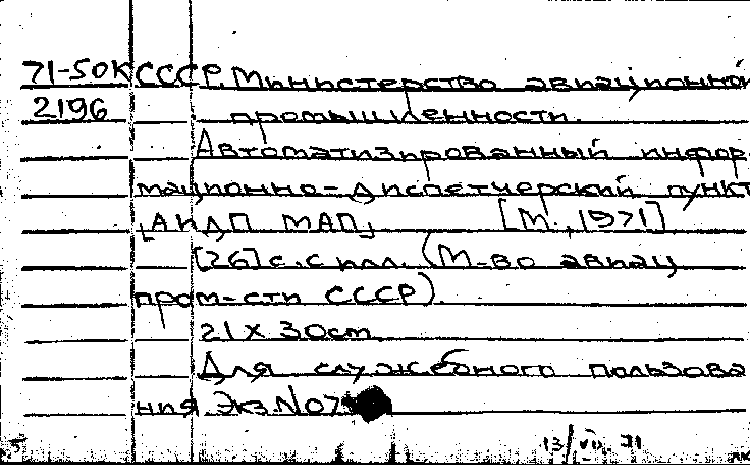 71-50К СССР. Министерство авиационной
2196 промышленности.
Автоматизированный инфор
мационно-диспетчерский пункт
„АИДП МАП„ [М., 1971]
[26] с. с илл. (М-во авиац
пром-сти СССР).
21 х 30cm
Для служебного пользова
ния. Экз. №07
13/VII 71